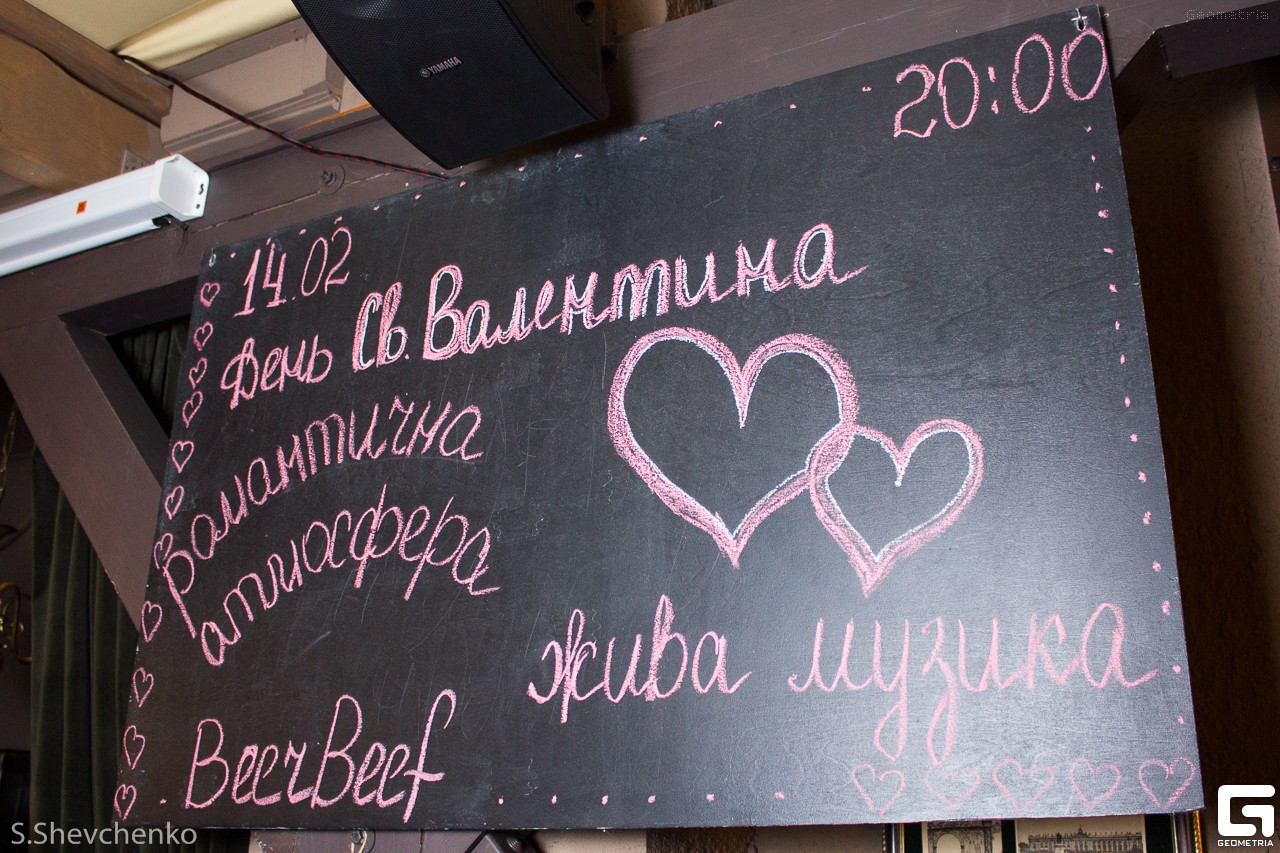 Geometria
YAMAHA
20:00
14.02
День Св. Валентина
романтична
атмосфера
жива музика
BeerBeef
S.Shevchenko
GEOMETRIA